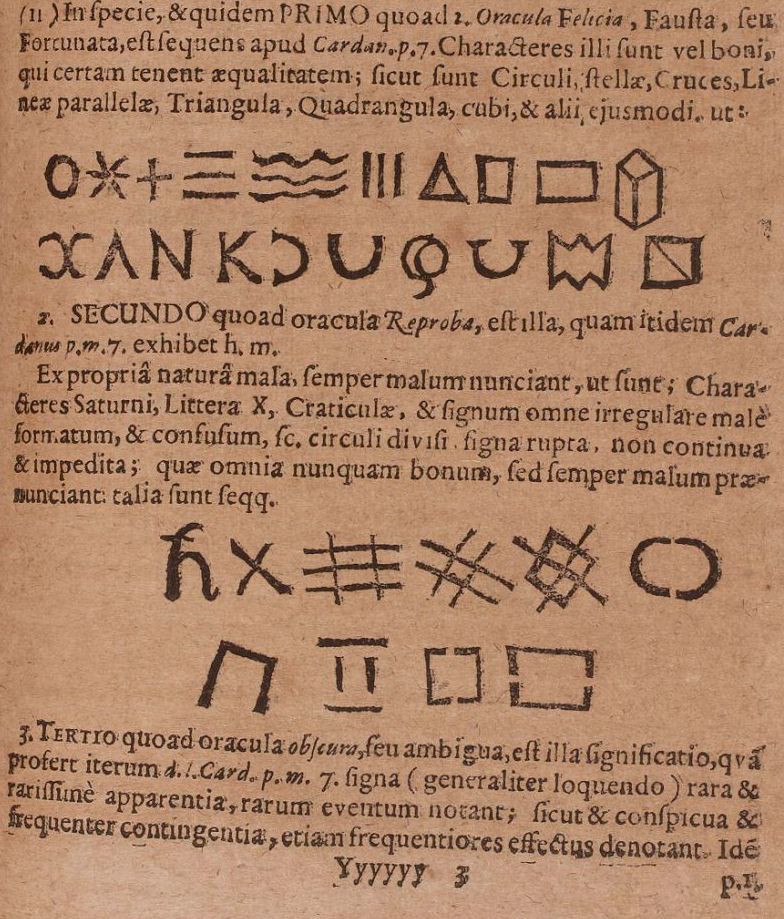 (11) In specie, & quidem PRIMO quoad 1. Oracula Felicia, Fausta, seu
Fortunata, est sequens apud Cardan. p. 7. Characteres illi sunt vel boni,
qui certam tenent æqualitatem; sicut sunt Circuli, stellæ, Cruces, Li-
neæ parallelæ, Triangula, Quadrangula, cubi, & alii ejusmodi. ut:
2. SECUNDO quoad oracula Reproba, est illa, quam itidem Car-
danus p. m. 7. exhibet h. m.
Ex propriâ naturâ mala, semper malum nunciant, ut sunt; Chara-
cteres Saturni, Littera X, Craticulæ, & signum omne irregulare malè
formatum, & confusum, sc. circuli divisi. signa rupta, non continua
& impedita; quæ omnia nunquam bonum, sed semper malum præ-
nunciant: talia sunt seqq.
3. TERTIO quoad oracula obscura, seu ambigua, est illa significatio, qvâ
profert iterum d. l. Card. p. m. 7. signa (generaliter loquendo) rara &
rarissimè apparentia, rarum eventum notant; sicut & conspicua &
frequenter contingentia, etiam frequentiores effectus denotant. Idē
Yyyyyy 3